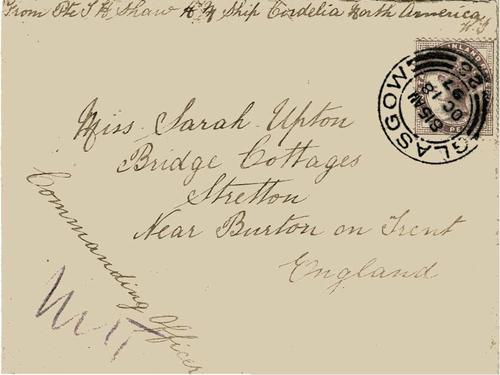 From Pte J H Shaw H M Ship Cordelia North America
W.I
GLASGOW
8 15 AM
OC 18
97
Miss Sarah Upton
Bridge Cottages
Stretton
Near Burton on Trent
England
Commanding Officer